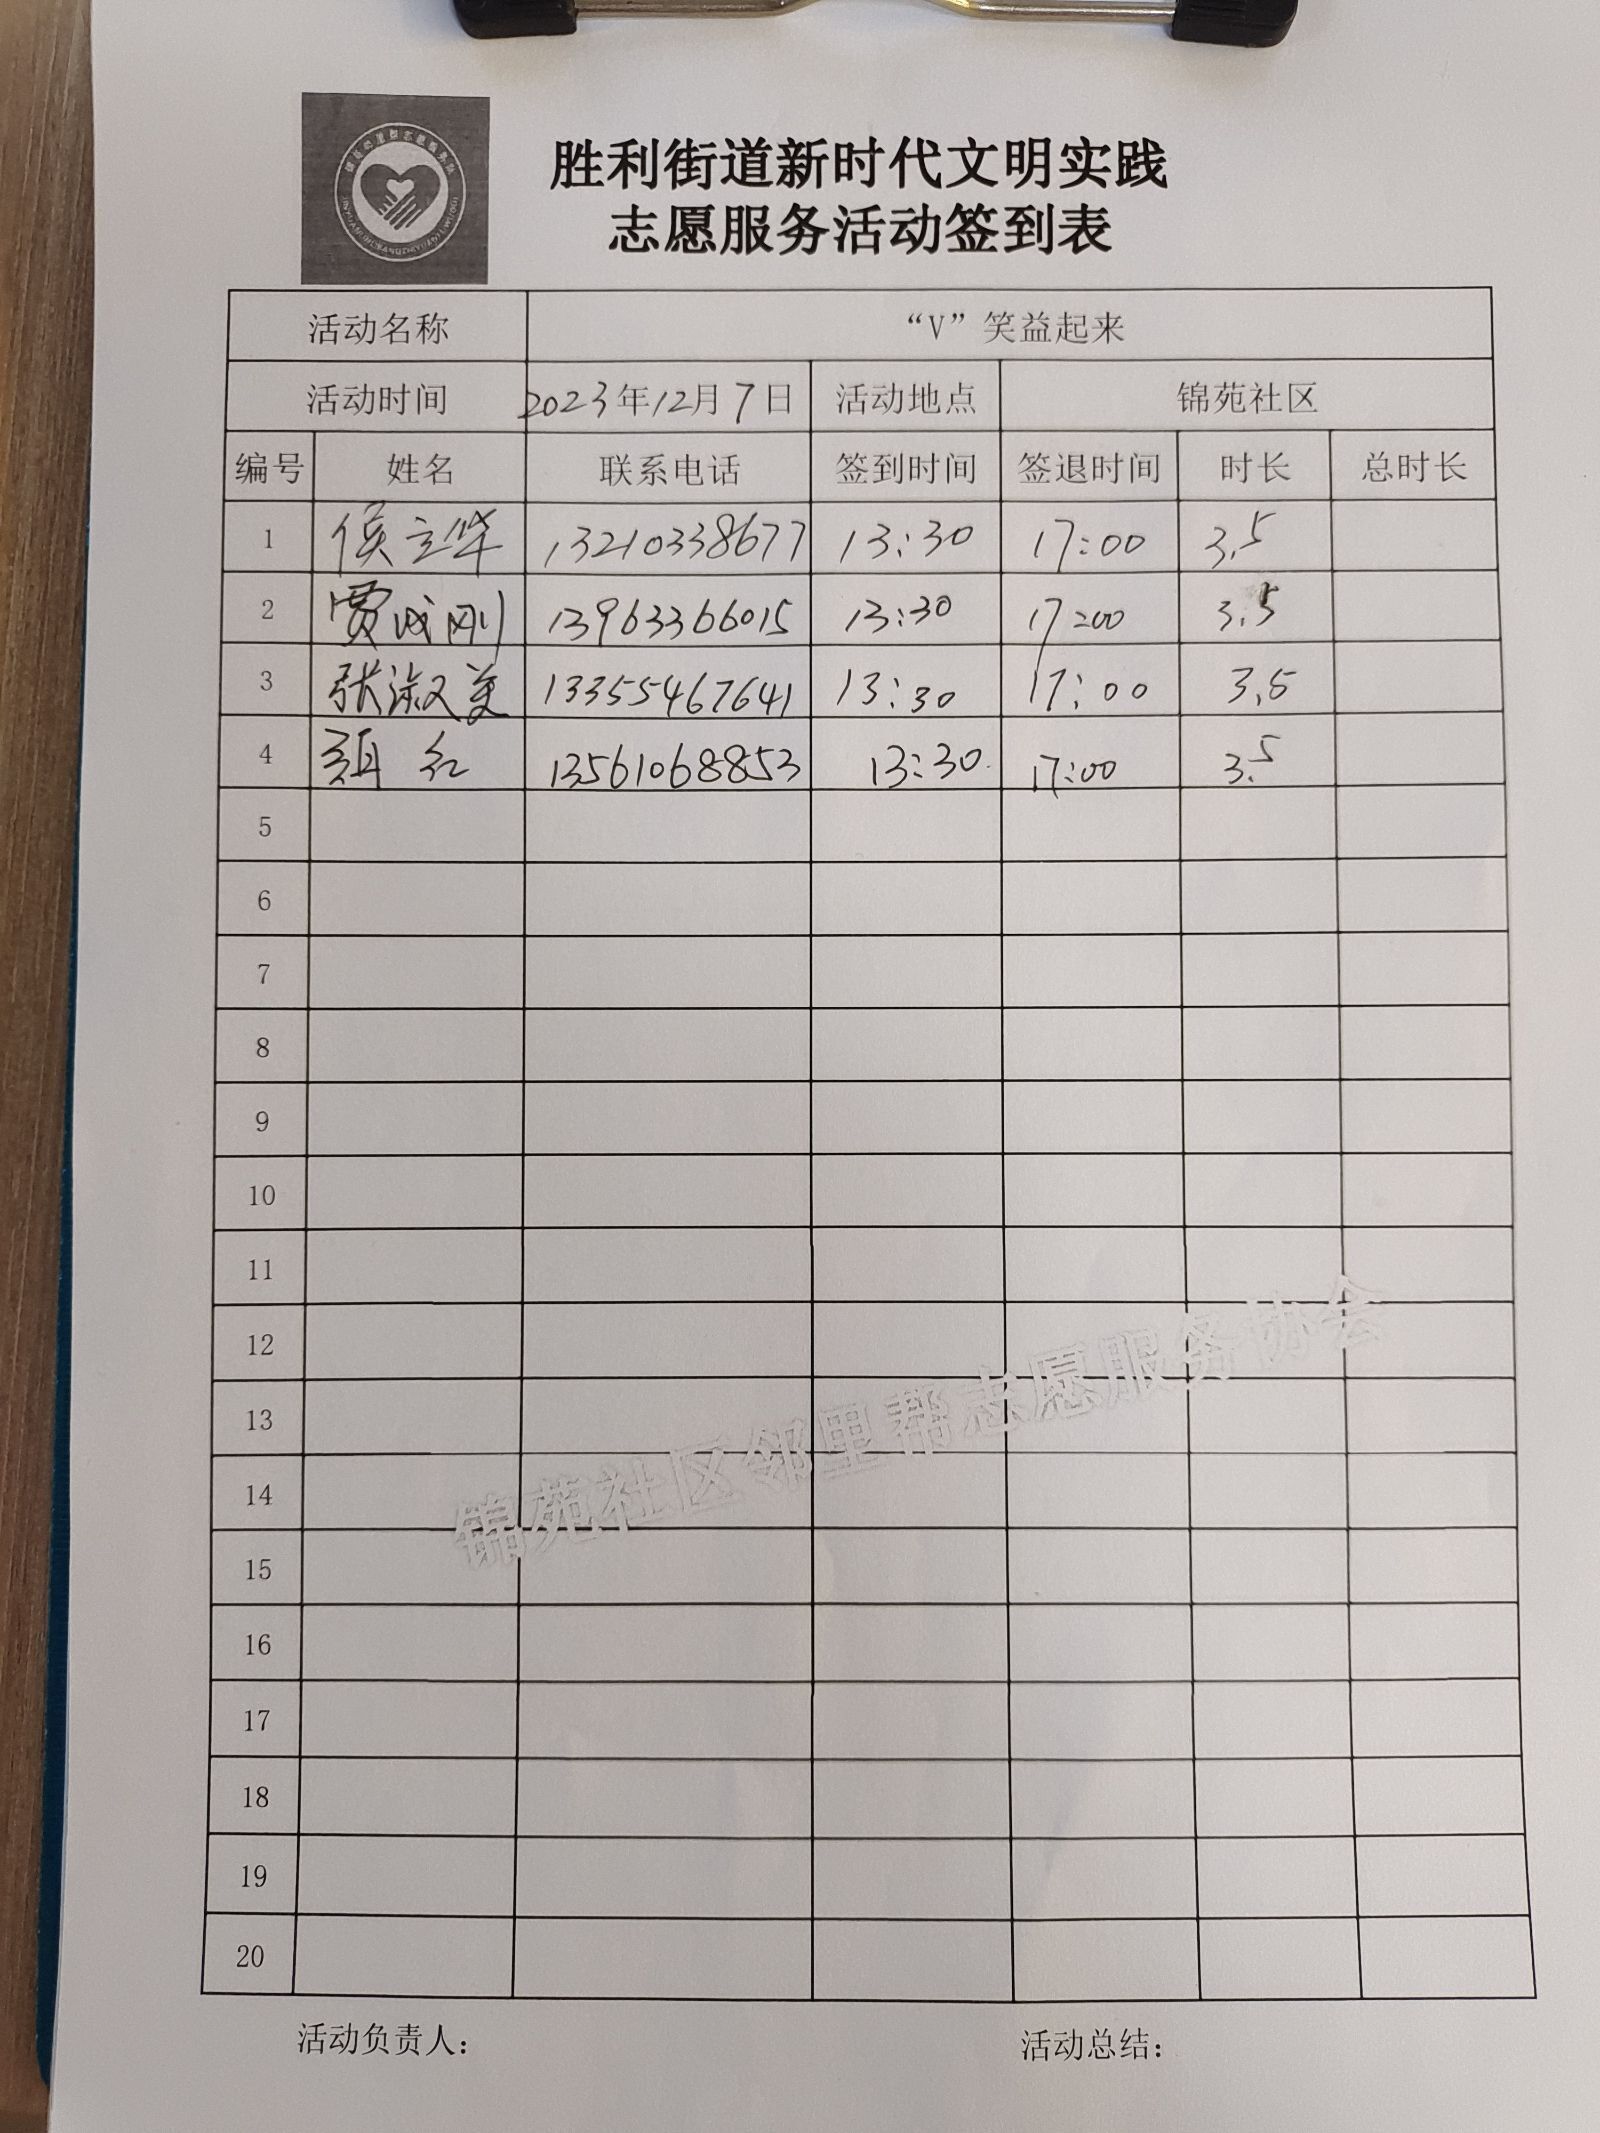 胜利街道新时代文明实践
志愿服务活动签到表
活动名称 “V”笑益起来
活动时间 2023年12月7日 活动地点 锦苑社区
编号 姓名 联系电话 签到时间 签退时间 时长 总时长
1 侯立华 13210338677 13:30 17:00 3.5
2 贾成刚 13963366015 13:30 17:00 3.5
3 张淑美 13355467641 13:30 17:00 3.5
4 红 13561068853 13:30 17:00 3.5
5
6
7
8
9
10
11
12
13
14
15
16
17
18
19
20
锦苑社区邻里帮志愿服务协会
活动负责人： 活动总结：